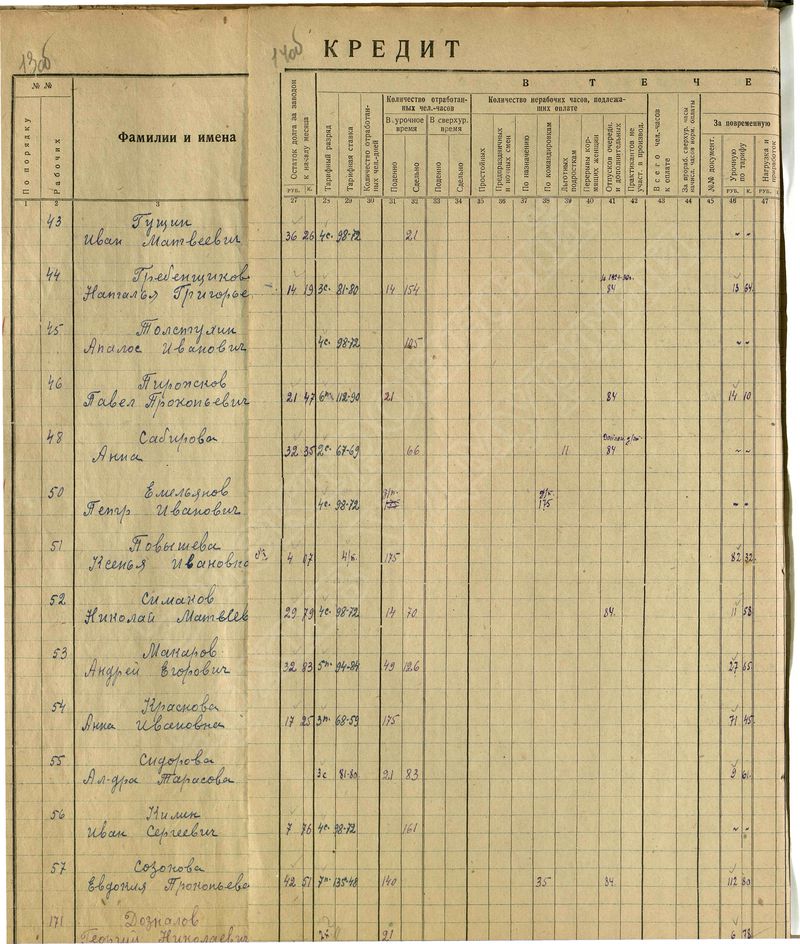 13об
14об
КРЕДИТ
№ №
По порядку
Рабочих
Фамилии и имена
Остаток долга за заводом к началу месяца
РУБ. К.
Тарифный разряд
Тарифная ставка
Количество отработанных чел.-дней
В ТЕЧЕ
Количество отработанных чел.-часов
В урочное время
В сверхур. время
Поденно
Сдельно
Поденно
Сдельно
Количество нерабочих часов, подлежащих оплате
Простойных
Предпраздничных и ночных смен
По назначению
По командировкам
Льготных подросткам
Перерывы кормящих женщин
Отпусков очередн. и дополнительных
Практикантов не участ. в производ.
Всего чел.-часов к оплате
За прораб. сверхур. часы начисл. часов норм. оплаты
За повременную
№№ документ.
Урочную по тарифу
РУБ. К.
Нагрузка и приработок
РУБ.
1 2 3 27 28 29 30 31 32 33 34 35 36 37 38 39 40 41 42 43 44 45 46 47
43 Гущин
Иван Матвеевич 36 26 4с. 98-72 21 - -
44 Гребенщиков
Наталья Григорье 14 19 3с 81-80 14 154 84 13 64
45 Толстухин
Апалос Иванович 4с. 98-72 105 - -
46 Пирожков
Павел Прокопьевич 21 47 6п. 112-90 21 84 14 10
48 Сабирова
Анна 32 35 2с. 67-69 66 11 84 - -
50 Емельянов
Петр Иванович 4с. 98-72 175 175 - -
51 Повышева
Ксенья Ивановна 4 07 175 82 32
52 Симаков
Николай Матвеев 29 79 4с. 98-72 14 70 84 11 58
53 Манаров
Андрей Егорович 32 83 5п. 94-84 49 126 27 65
54 Краснова
Анна Ивановна 17 25 3п. 68-59 175 71 45
55 Сидорова
Ал-дра Тарасова 3с 81-80 21 83 9 61
56 Килин
Иван Сергеевич 7 76 4с. 98-72 161 - -
57 Созонова
Евдокия Прокопьева 42 51 7п. 135-48 140 35 84 112 80
171 Дозналов
Георгий Николаевич 21 6 78